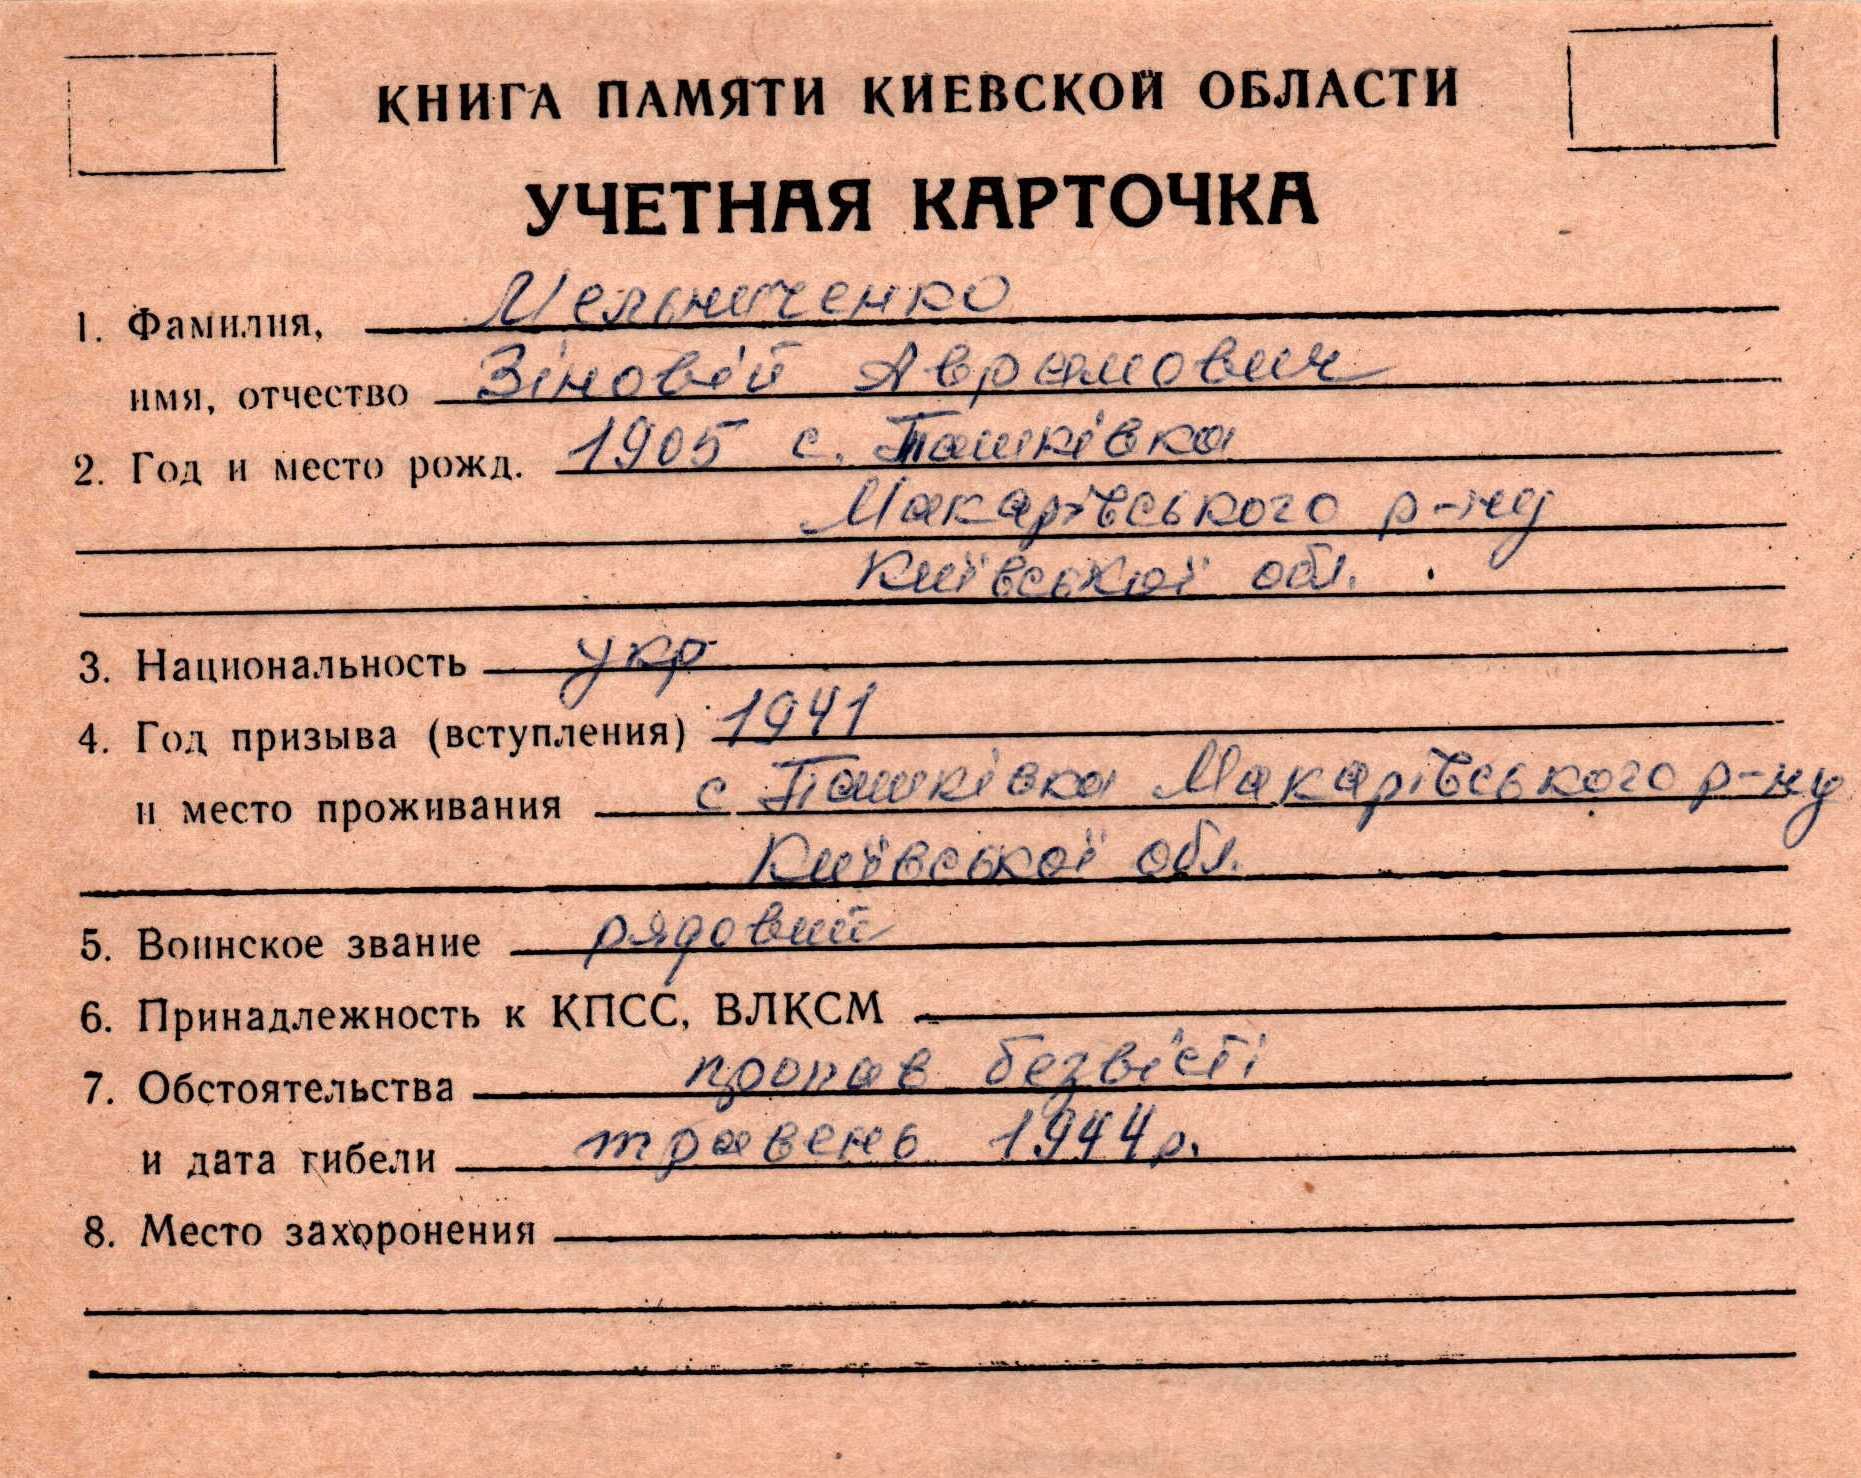 КНИГА ПАМЯТИ КИЕВСКОЙ ОБЛАСТИ
УЧЕТНАЯ КАРТОЧКА
1. Фамилия, Мельниченко
имя, отчество Зіновій Аврамович
2. Год и место рожд. 1905 с. Пашківка
Макарівського р-ну
Київської обл.
3. Национальность укр
4. Год призыва (вступления) 1941
и место проживания с Пашківка Макарівського р-ну
Київської обл.
5. Воинское звание рядовий
6. Принадлежность к КПСС, ВЛКСМ
7. Обстоятельства пропав безвісті
и дата гибели травень 1944р.
8. Место захоронения